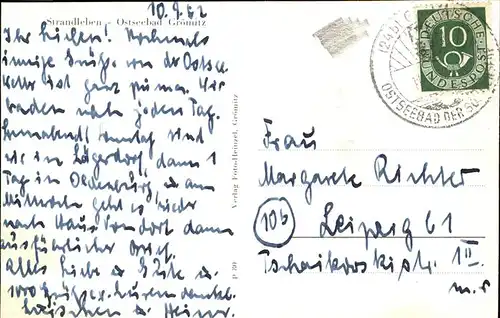 10.9.52
Strandleben - Ostseebad Grömitz
Ihr Lieben! Nochmals
innige Grüße von der Ostsee
Wetter ist ganz prima. Wir
baden noch jeden Tag.
Sonnabend, Sonntag sind
wir in Lägerdorf, dann 1
Tag in Oldenburg, u. am
Mittwoch geht es wieder
nach Haus. Von dort dann
ausführlicher Brief.
Alles Liebe u. Gute u.
1000 Grüße v. Euren
u. Heinz.
Verlag Foto-Heinzel, Grömitz
DEUTSCHE
BUNDESPOST
10
OSTSEEBAD DER
Frau
Margarete Richter
10b Leipzig C1
Tschaikowskistr. 1 II